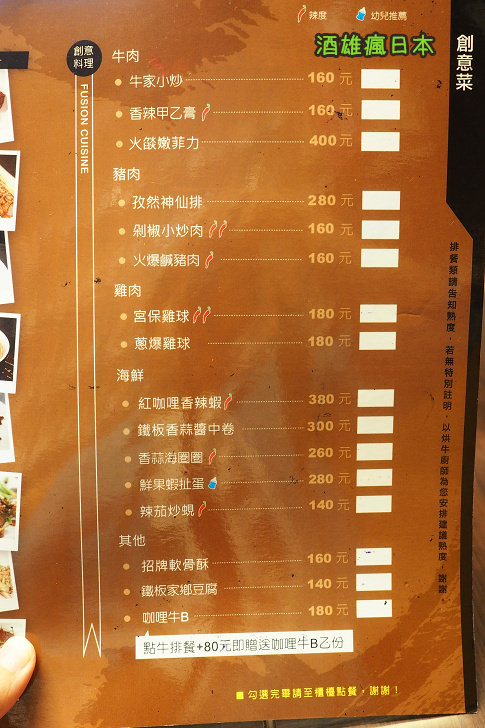 辣度
幼兒推薦
酒雄瘋日本
創意菜
創意
料理
FUSION CUISINE
牛肉
牛家小炒 160 元
香辣甲乙膏 160 元
火燄嫩菲力 400 元
豬肉
孜然神仙排 280 元
剁椒小炒肉 160 元
火爆鹹豬肉 160 元
雞肉
宮保雞球 180 元
蔥爆雞球 180 元
海鮮
紅咖哩香辣蝦 380 元
鐵板香蒜醬中卷 300 元
香蒜海圈圈 260 元
鮮果蝦扯蛋 280 元
辣茄炒蜆 140 元
其他
招牌軟骨酥 160 元
鐵板家鄉豆腐 140 元
咖哩牛B 180 元
點牛排餐+80元即贈送咖哩牛B乙份
排餐類請告知熟度，若無特別註明，以烘牛廚師為您安排建議熟度，謝謝。
■勾選完畢請至櫃檯點餐，謝謝！